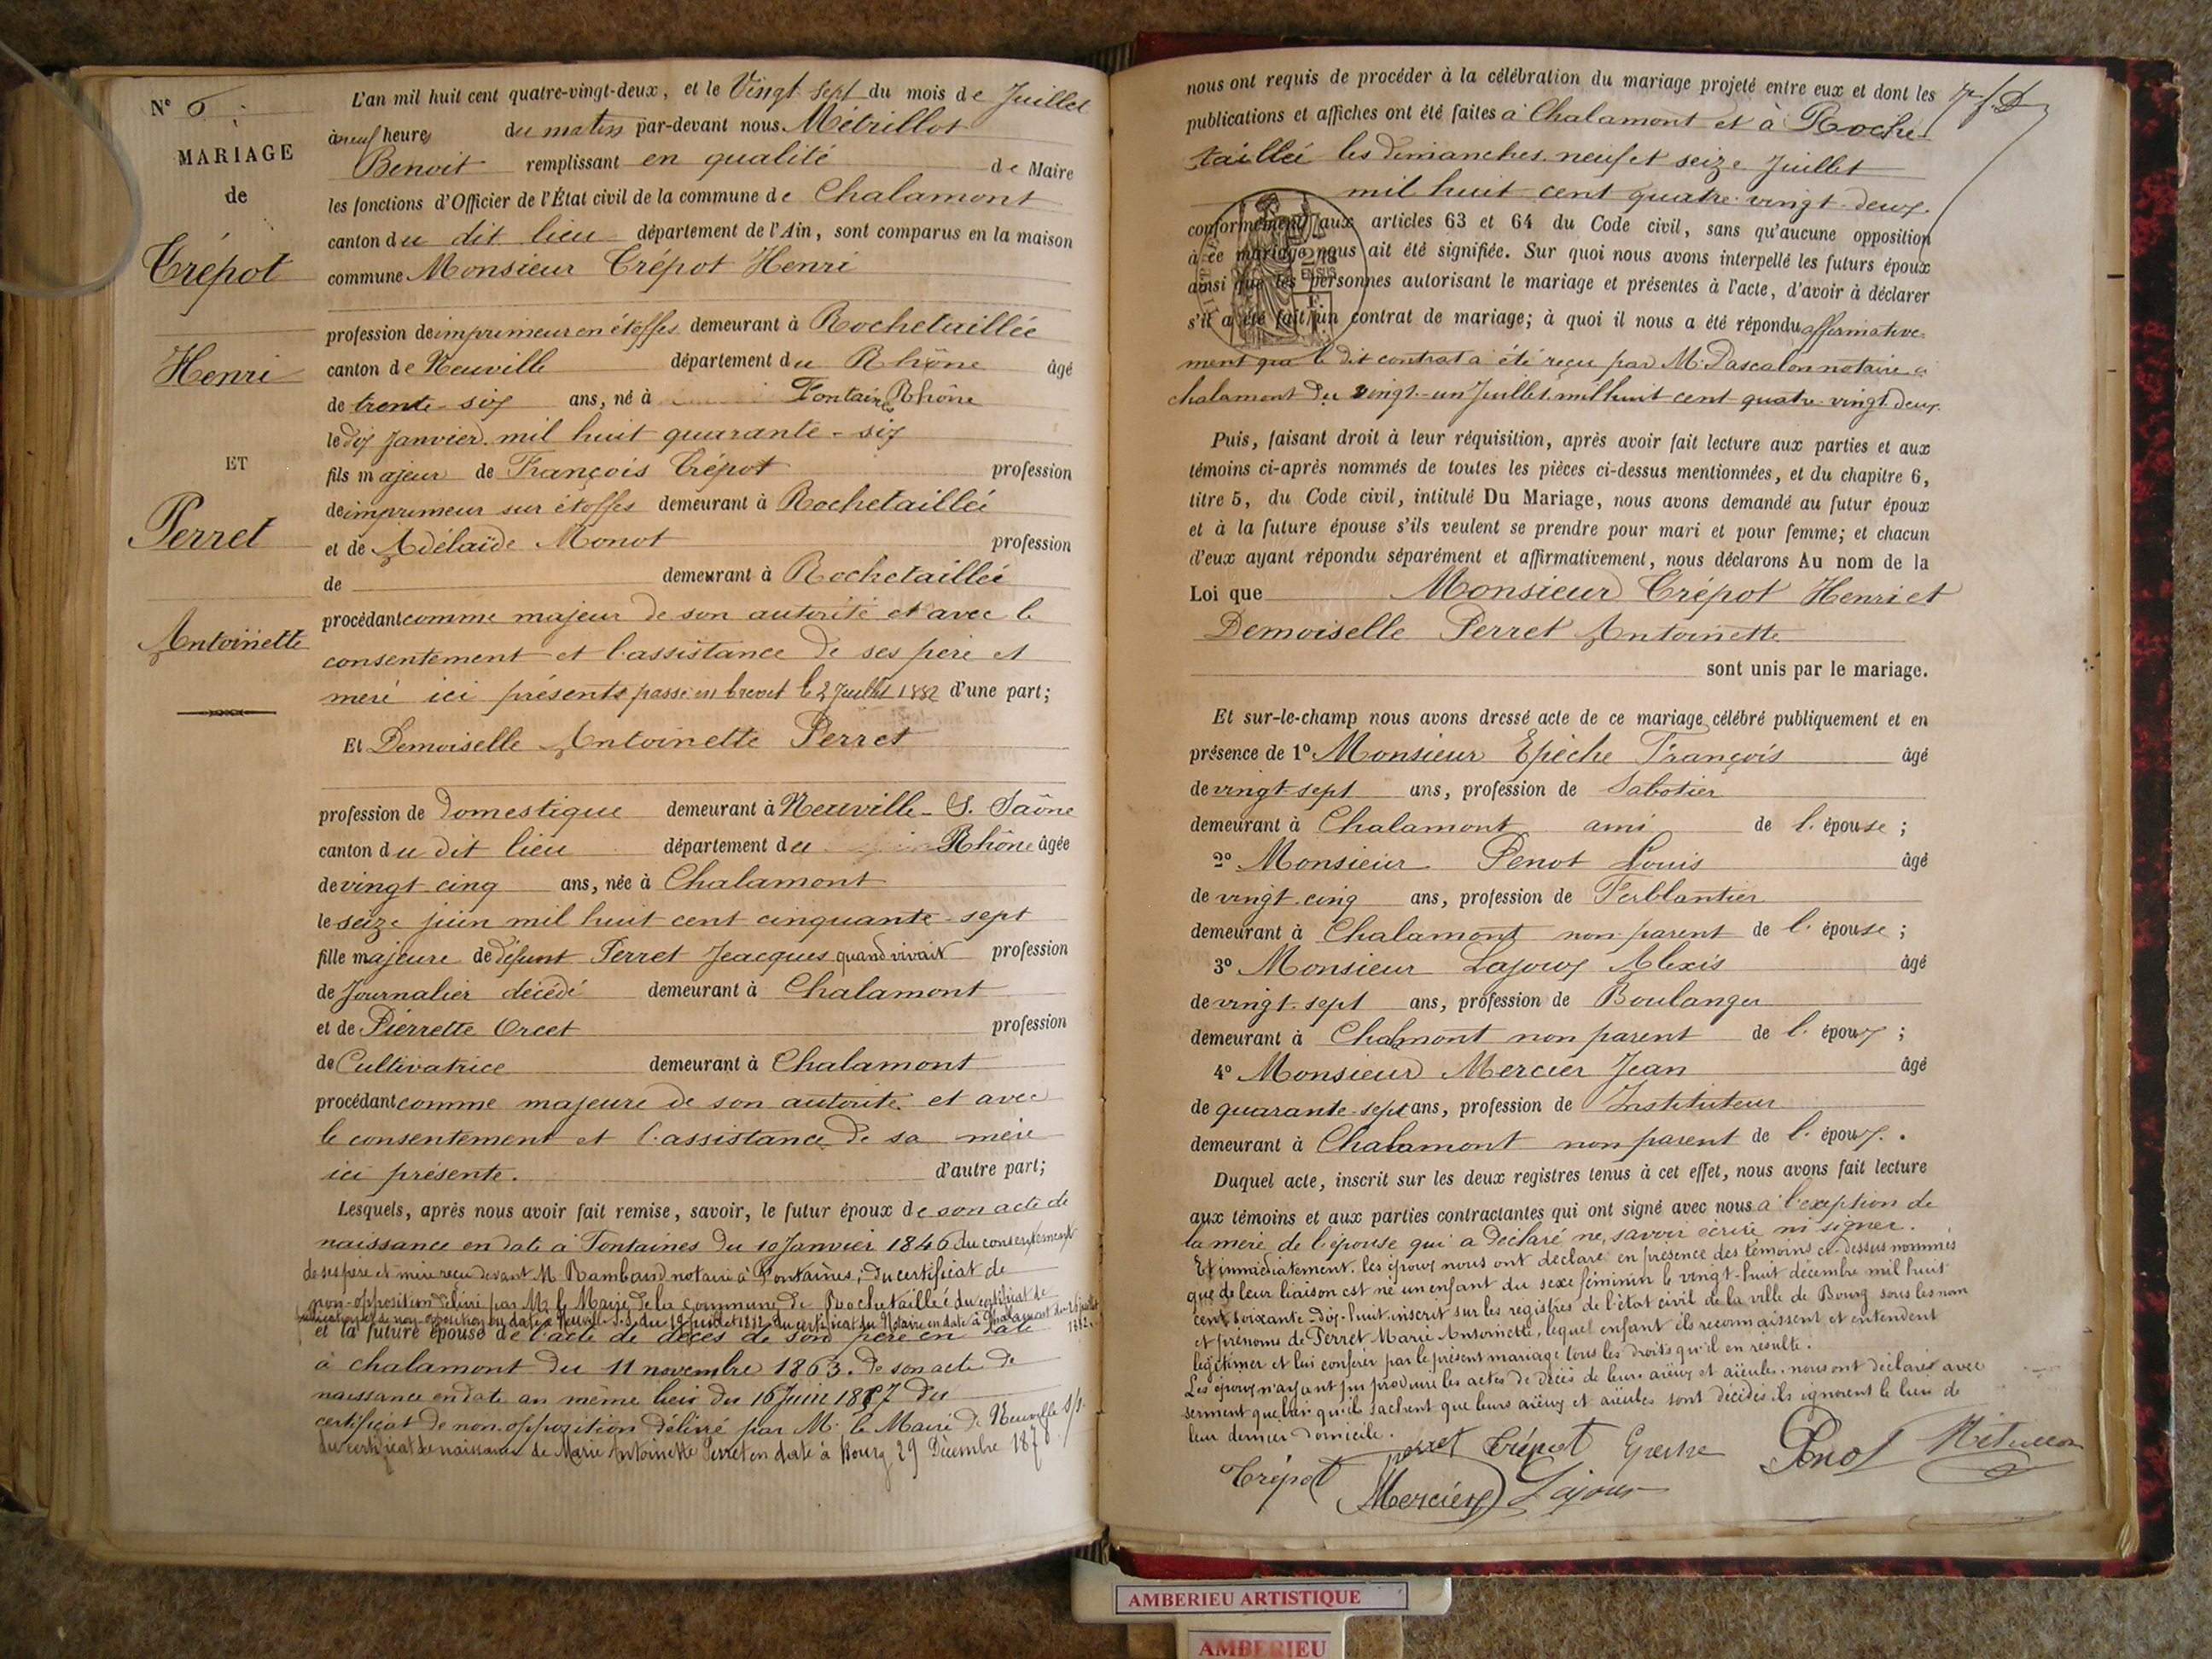 N° 6
MARIAGE
de
Crépot
Henri
ET
Perret
Antoinette
L'an mil huit cent quatre-vingt-deux, et le Vingt sept du mois de Juillet
à neuf heures du matin par-devant nous Métrillot
Benoit remplissant en qualité de Maire
les fonctions d'Officier de l'État civil de la commune de Chalamont
canton du dit lieu département de l'Ain, sont comparus en la maison
commune Monsieur Crépot Henri
profession de imprimeur en étoffes demeurant à Rochetaillée
canton de Neuville département du Rhône âgé
de trente-six ans, né à Fontaines Rhône
le dix Janvier mil huit quarante-six
fils majeur de François Crépot profession
de imprimeur sur étoffes demeurant à Rochetaillée
et de Adélaïde Monot profession
de demeurant à Rochetaillée
procédant comme majeur de son autorité et avec le
consentement et l'assistance de ses père et
mère ici présents passé en brevet le 2 Juillet 1882 d'une part;
Et Demoiselle Antoinette Perret
profession de Domestique demeurant à Neuville-S. Saône
canton du dit lieu département du Rhône âgée
de vingt cinq ans, née à Chalamont
le seize juin mil huit cent cinquante-sept
fille majeure de défunt Perret Jeacques quand vivait profession
de Journalier décédé demeurant à Chalamont
et de Pierrette Orcet profession
de Cultivatrice demeurant à Chalamont
procédant comme majeure de son autorité et avec
le consentement et l'assistance de sa mère
ici présente. d'autre part;
Lesquels, après nous avoir fait remise, savoir, le futur époux de son acte de
naissance en date à Fontaines du 10 Janvier 1846 du consentement
de ses père et mère reçu devant M Rambaud notaire à Fontaines; du certificat de
non-opposition délivré par Mr le Maire de la commune de Rochetaillée du certificat de
publication et de non-opposition en date à Neuville S.S. du 19 Juillet 1882 du certificat du Notaire en date à Chalamont du juillet
1882.
et la future épouse de l'acte de décès de son père en date
à Chalamont du 11 novembre 1863. De son acte de
naissance en date au même lieu du 16 Juin 1857 du
certificat de non-opposition délivré par M. le Maire de Neuville s/s.
du certificat de naissance de Marie Antoinette Perret en date à Bourg 29 Décembre 1878
nous ont requis de procéder à la célébration du mariage projeté entre eux et dont les
publications et affiches ont été faites à Chalamont et à Roche-
taillée les dimanches neuf et seize Juillet
mil huit cent quatre vingt-deux.
conformément aux articles 63 et 64 du Code civil, sans qu'aucune opposition
à ce mariage nous ait été signifiée. Sur quoi nous avons interpellé les futurs époux
ainsi que les personnes autorisant le mariage et présentes à l'acte, d'avoir à déclarer
s'il a été fait un contrat de mariage; à quoi il nous a été répondu affirmative-
ment que le dit contrat a été reçu par M. Pascalon notaire à
chalamont du vingt-un Juillet mil huit cent quatre vingt deux
Puis, faisant droit à leur réquisition, après avoir fait lecture aux parties et aux
témoins ci-après nommés de toutes les pièces ci-dessus mentionnées, et du chapitre 6,
titre 5, du Code civil, intitulé Du Mariage, nous avons demandé au futur époux
et à la future épouse s'ils veulent se prendre pour mari et pour femme; et chacun
d'eux ayant répondu séparément et affirmativement, nous déclarons Au nom de la
Loi que Monsieur Crépot Henri et
Demoiselle Perret Antoinette
sont unis par le mariage.
Et sur-le-champ nous avons dressé acte de ce mariage célébré publiquement et en
présence de 1° Monsieur Epèche François âgé
de vingt sept ans, profession de Sabotier
demeurant à Chalamont ami de l'épouse;
2° Monsieur Penot Louis âgé
de vingt cinq ans, profession de Ferblantier
demeurant à Chalamont non parent de l'épouse;
3° Monsieur Lajoux Alexis âgé
de vingt-sept ans, profession de Boulanger
demeurant à Chalamont non parent de l'époux;
4° Monsieur Mercier Jean âgé
de quarante-sept ans, profession de Instituteur
demeurant à Chalamont non parent de l'époux.
Duquel acte, inscrit sur les deux registres tenus à cet effet, nous avons fait lecture
aux témoins et aux parties contractantes qui ont signé avec nous à l'exeption de
la mère de l'épouse qui a déclaré ne savoir écrire ni signer.
Et immédiatement les époux nous ont déclaré en présence des témoins ci-dessus nommés
que de leur liaison est né un enfant du sexe féminin le vingt-huit décembre mil huit
cent soixante-dix-huit inscrit sur les registres de l'état civil de la ville de Bourg sous les nom
et prénoms de Perret Marie Antoinette, lequel enfant ils reconnaissent et entendent
légitimer et lui conférer par le présent mariage tous les droits qu'il en résulte.
Les époux n'ayant pu produire les actes de décès de leurs aïeux et aïeules nous ont déclaré avec
serment que bien qu'ils sachent que leurs aïeux et aïeules sont décédés ils ignorent le lieu de
leur dernier domicile.
perret Crépot Epèche Penot Métrillot
Crépot Mercier Lajoux
AMBERIEU ARTISTIQUE
AMBERIEU